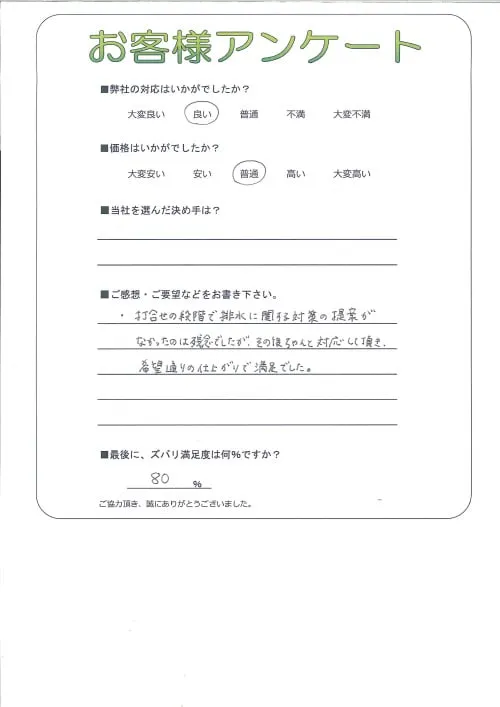 お客様アンケート
■弊社の対応はいかがでしたか？
大変良い 良い 普通 不満 大変不満
■価格はいかがでしたか？
大変安い 安い 普通 高い 大変高い
■当社を選んだ決め手は？
■ご感想・ご要望などをお書き下さい。
・打合せの段階で排水に関する対策の提案が
なかったのは残念でしたが、その後ちゃんと対応して頂き、
希望通りの仕上がりで満足でした。
■最後に、ズバリ満足度は何％ですか？
80 ％
ご協力頂き、誠にありがとうございました。